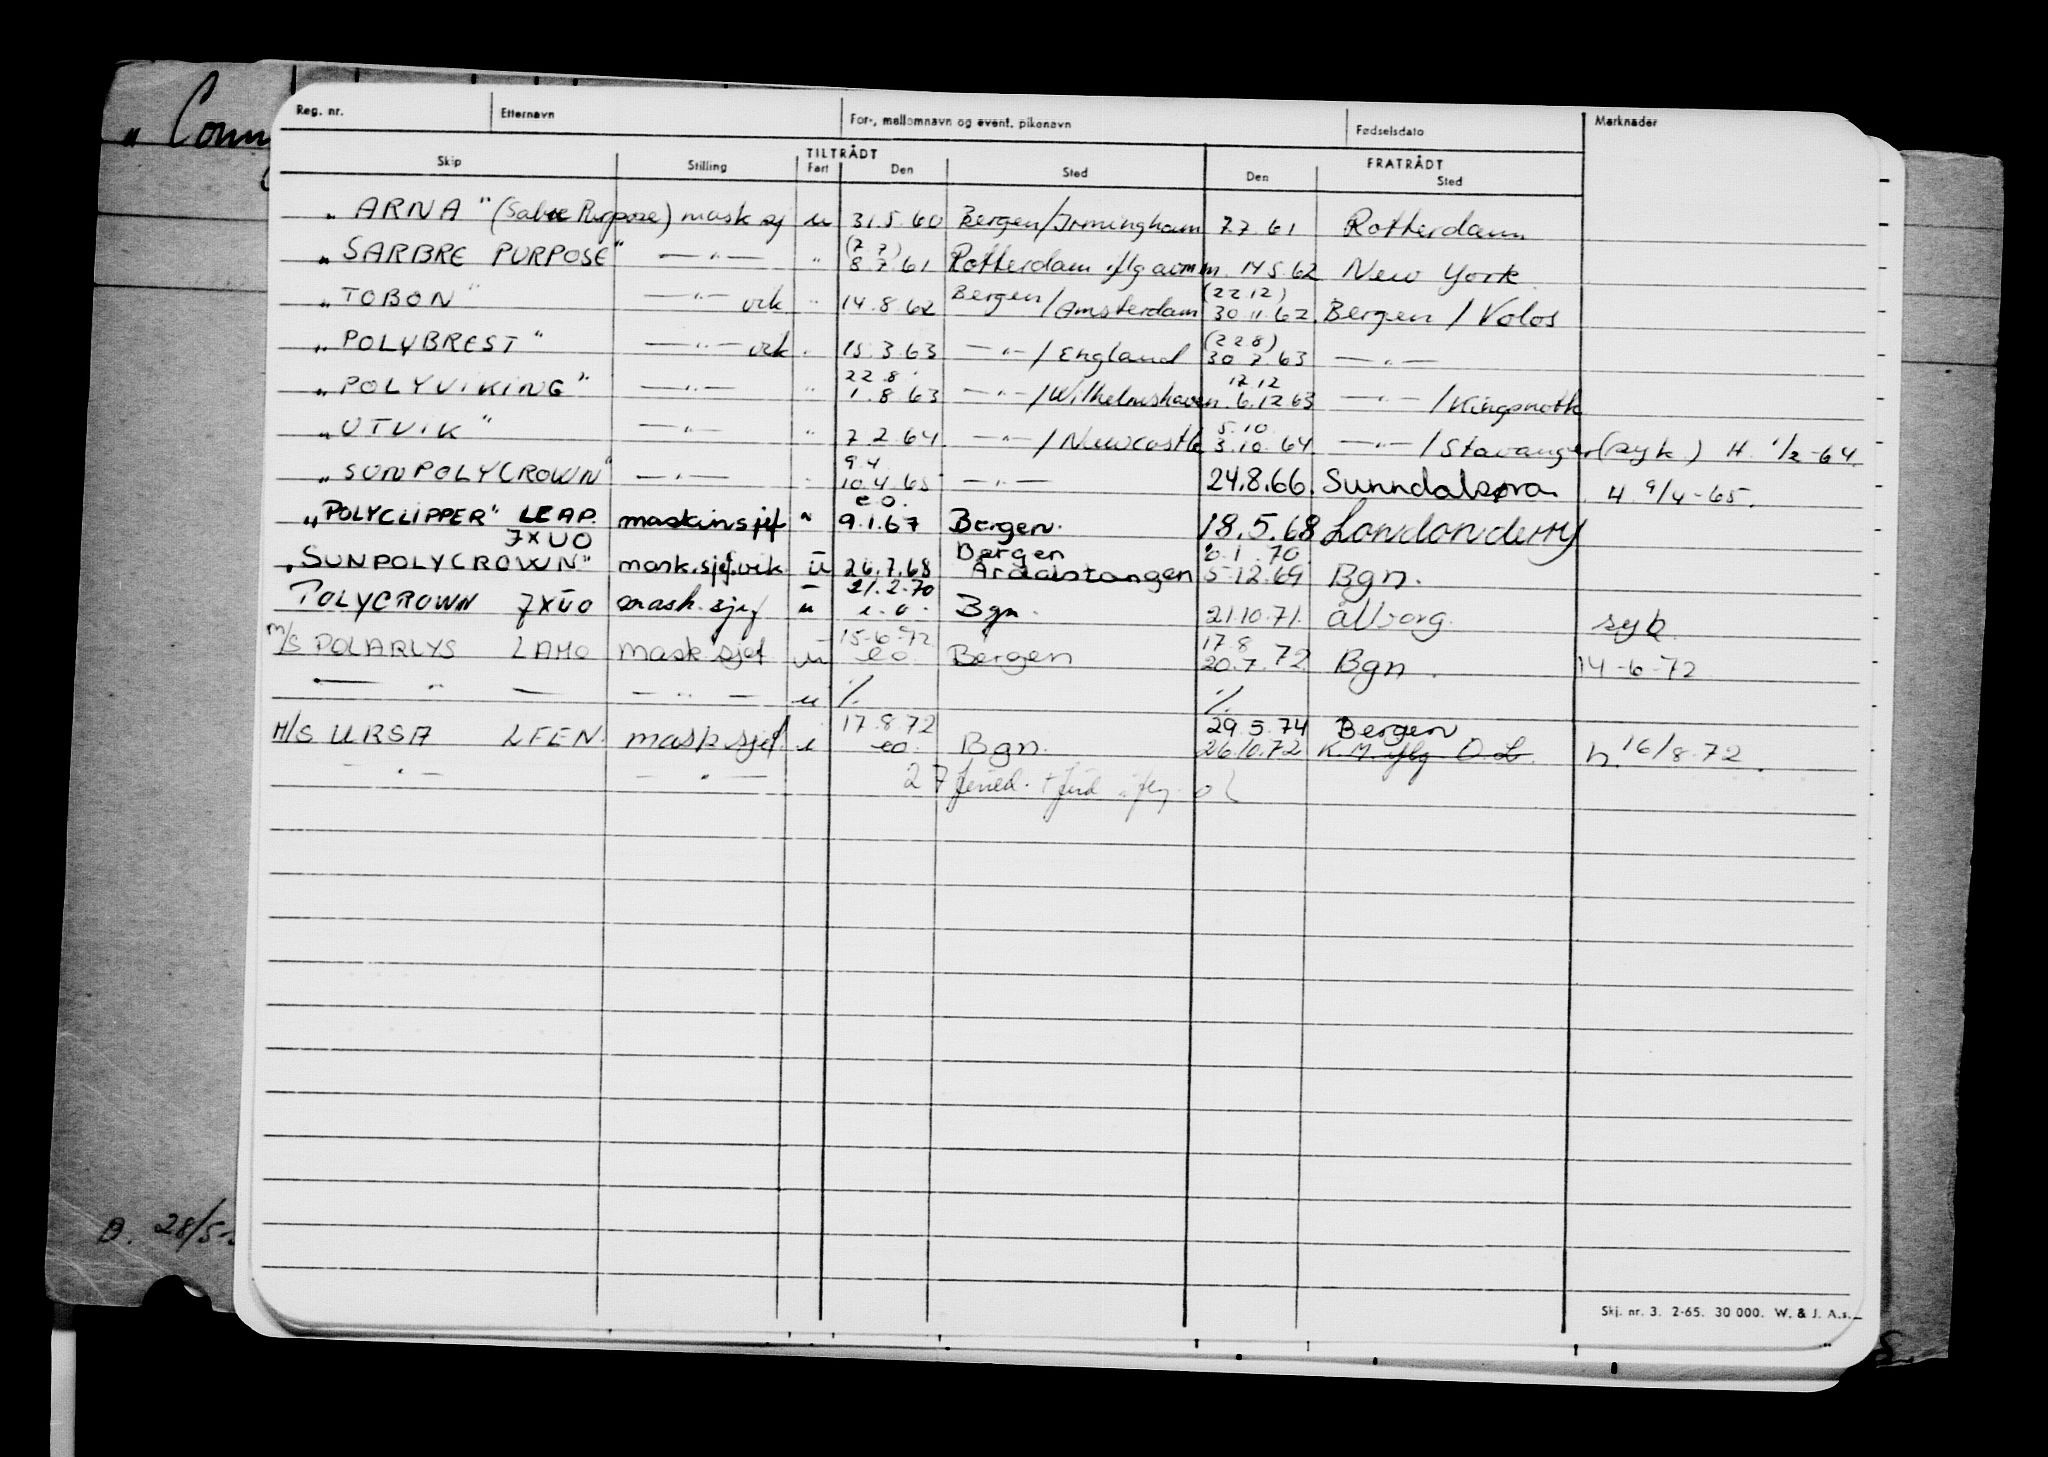 „ Conn
Reg. nr. Etternavn For-, mellomnavn og event. pikenavn Fødselsdato Merknader
TILTRÅDT FRATRÅDT
Skip Stilling Fart Den Sted Den Sted
„ ARNA " (Sabre Purpose) mask sj u 31.5.60 Bergen/Irmingham 7.7.61 Rotterdam
(7 7)
„ SARBRE PURPOSE" —"— " 8.7.61 Rotterdam iflg avm m. 14.5.62 New York
(22 12)
„ TOBON" —"— vik. " 14.8.62 Bergen/Amsterdam 30.11.62 Bergen / Volos
(22 8)
„ POLYBREST" —"— vik " 15.3.63 —"—/England 30.7.63 —"—
22.8. 12.12
„ POLYVIKING" —"— " 1.8.63 —"—/Wilhelmshaven 6.12.63 —"—/Kingsnorth
5.10.
„ UTVIK " —"— " 7.2.64 —"—/Newcastle 3.10.64 —"—/Stavanger (syk.) H. 1/2-64.
9.4.
„ SUNPOLYCROWN" —"— " 10.4.65 —"— 24.8.66. Sunndalsøra H 9/4-65.
e.o.
„POLYCLIPPER" LEAP. maskinsjef " 9.1.67 Bergen. 18.5.68 Londonderry
7XUO Bergen 1.70.
„SUNPOLYCROWN" mask.sjef.vik. u 26.7.68 Årdalstangen 5.12.69 Bgn.
21.2.70
POLYCROWN 7XUO mask.sjef u e.o. Bgn. 21.10.71. Ålborg. syk.
15.6.72 17.8
M/S POLARLYS LAHO mask sjef u eo Bergen 20.7.72. Bgn. 14-6-72
— " — — " — u % %
17.8.72 29.5.74 Bergen
M/S URSA LFEN. mask sjef i eo. Bgn. 26.10.72 K.M. iflg. O.L. h. 16/8-72.
— " — — " — 27 iflg. OL
D. 28/5
Skj. nr. 3. 2-65. 30 000. W. & J. A.s.
S.